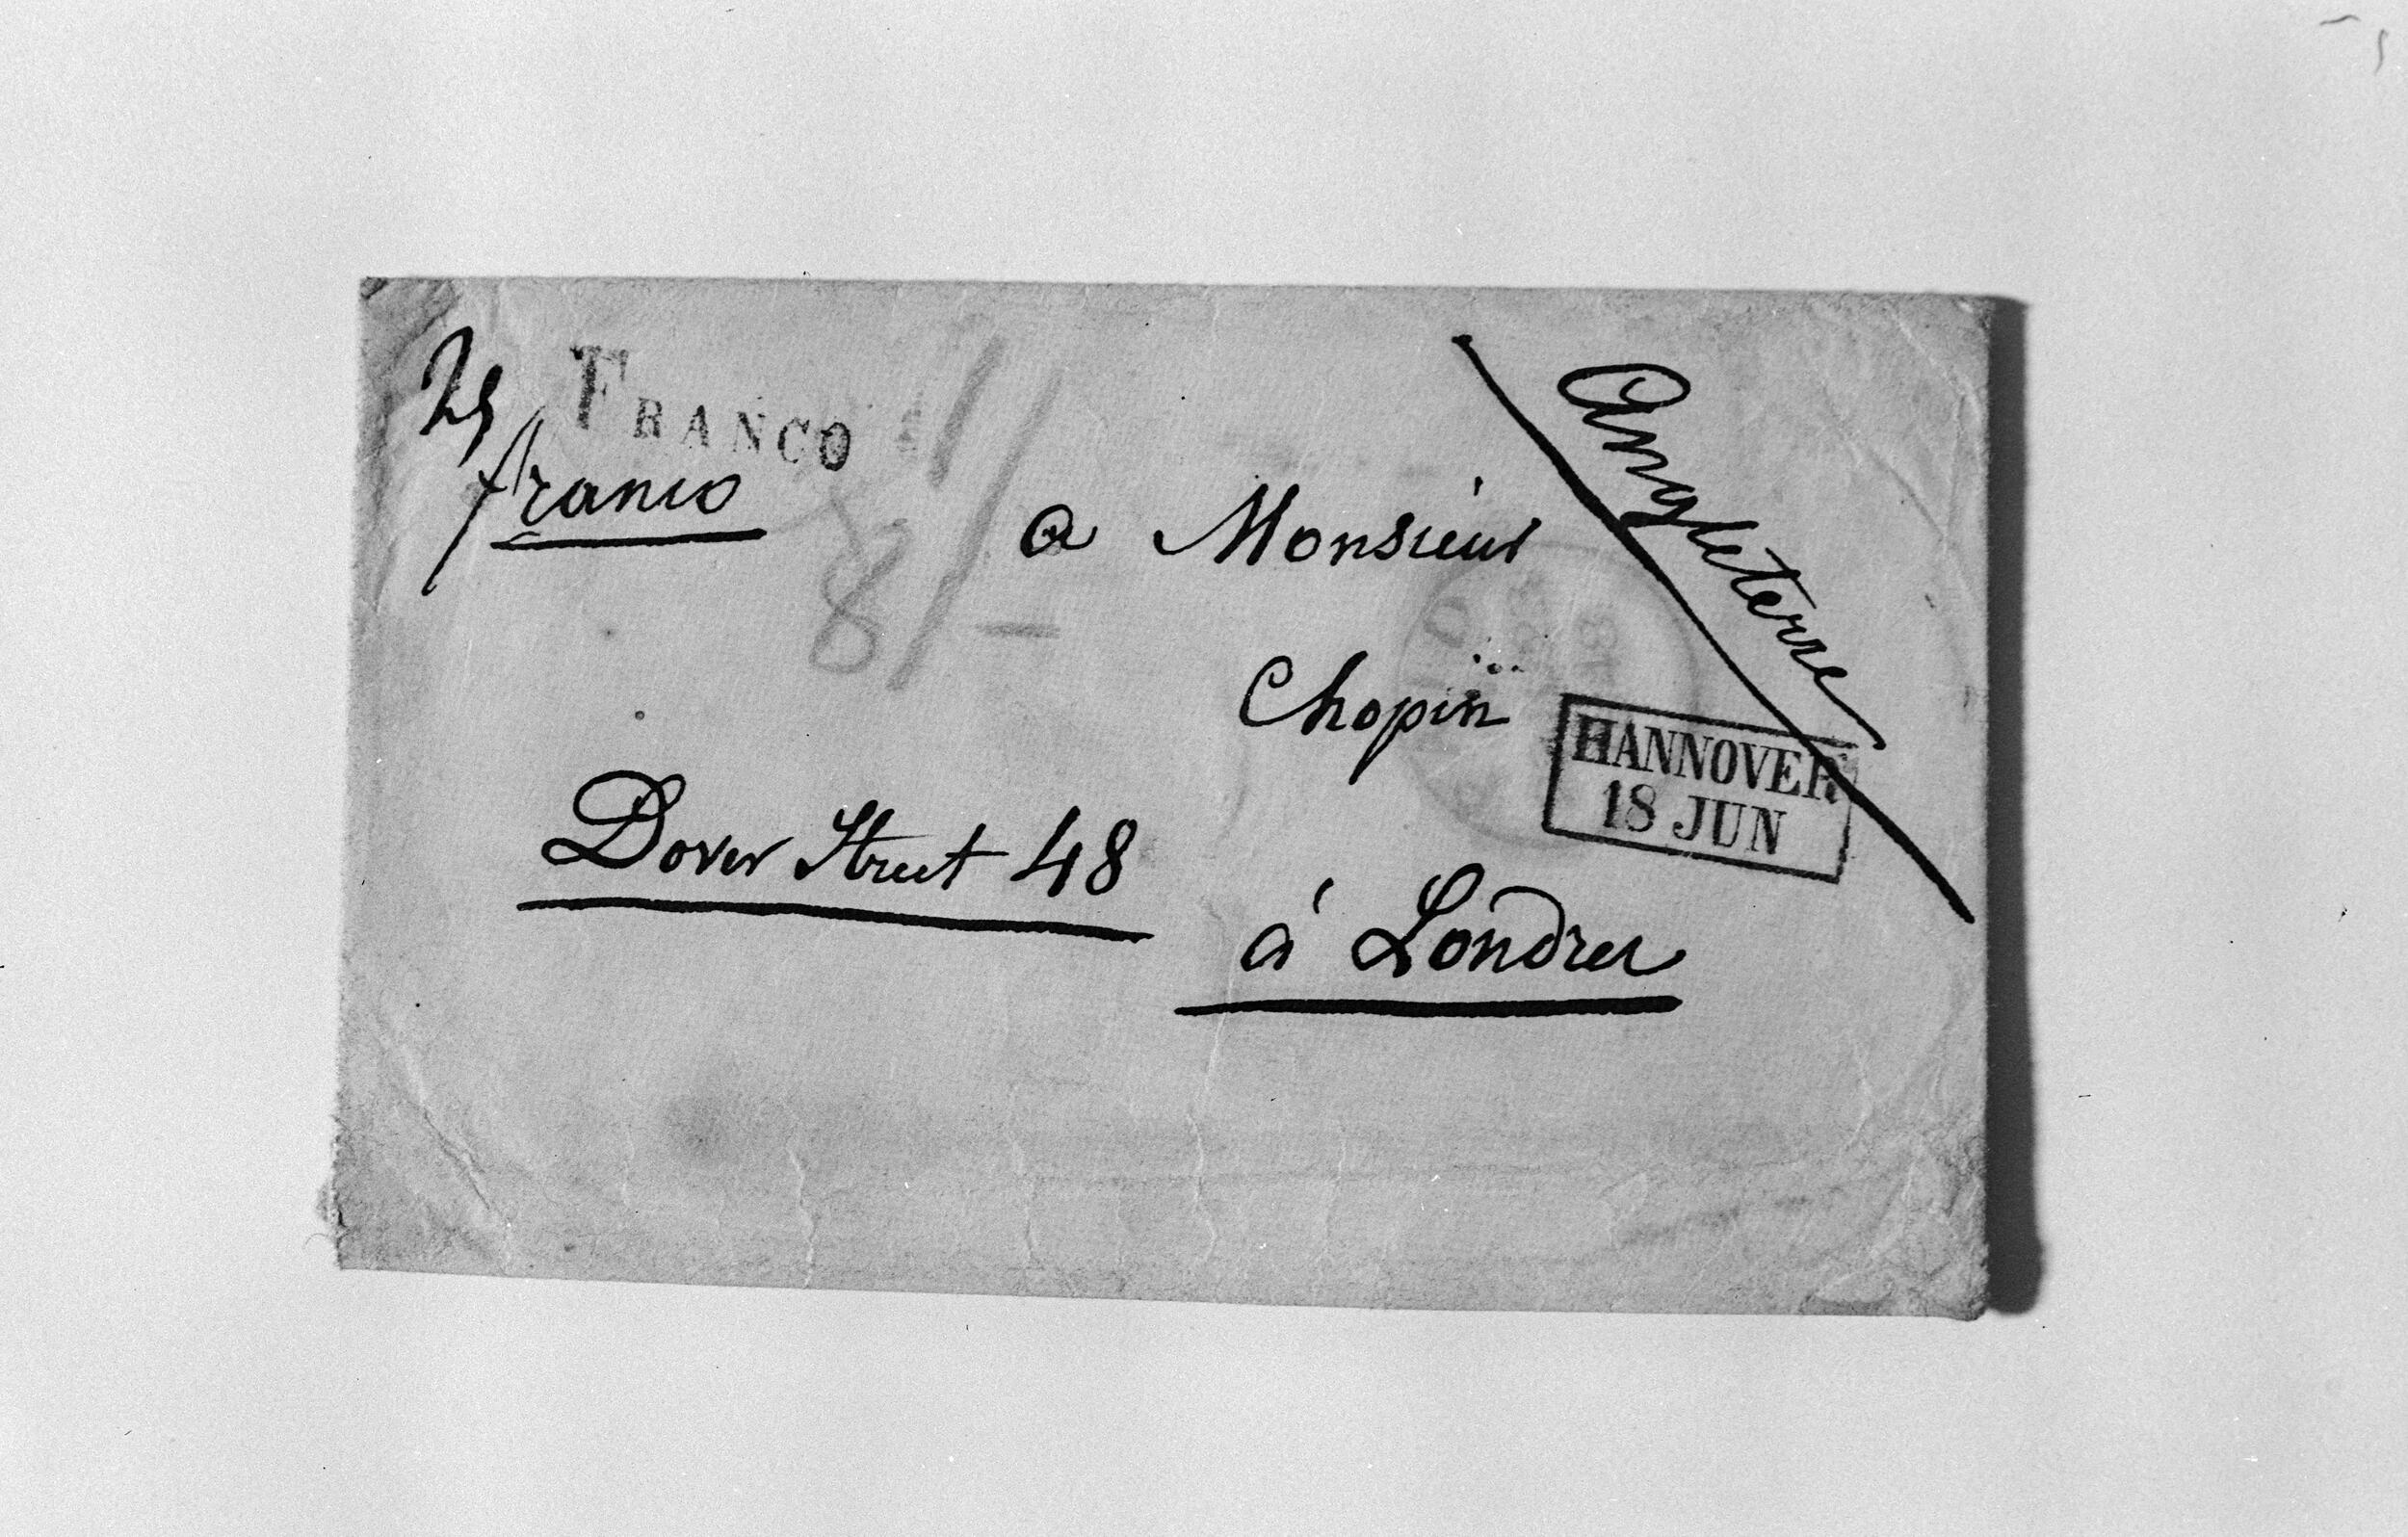 FRANCO
franco
Angleterre
a Monsieur
Chopin
HANNOVER
18 JUN
Dover Street 48
à Londres